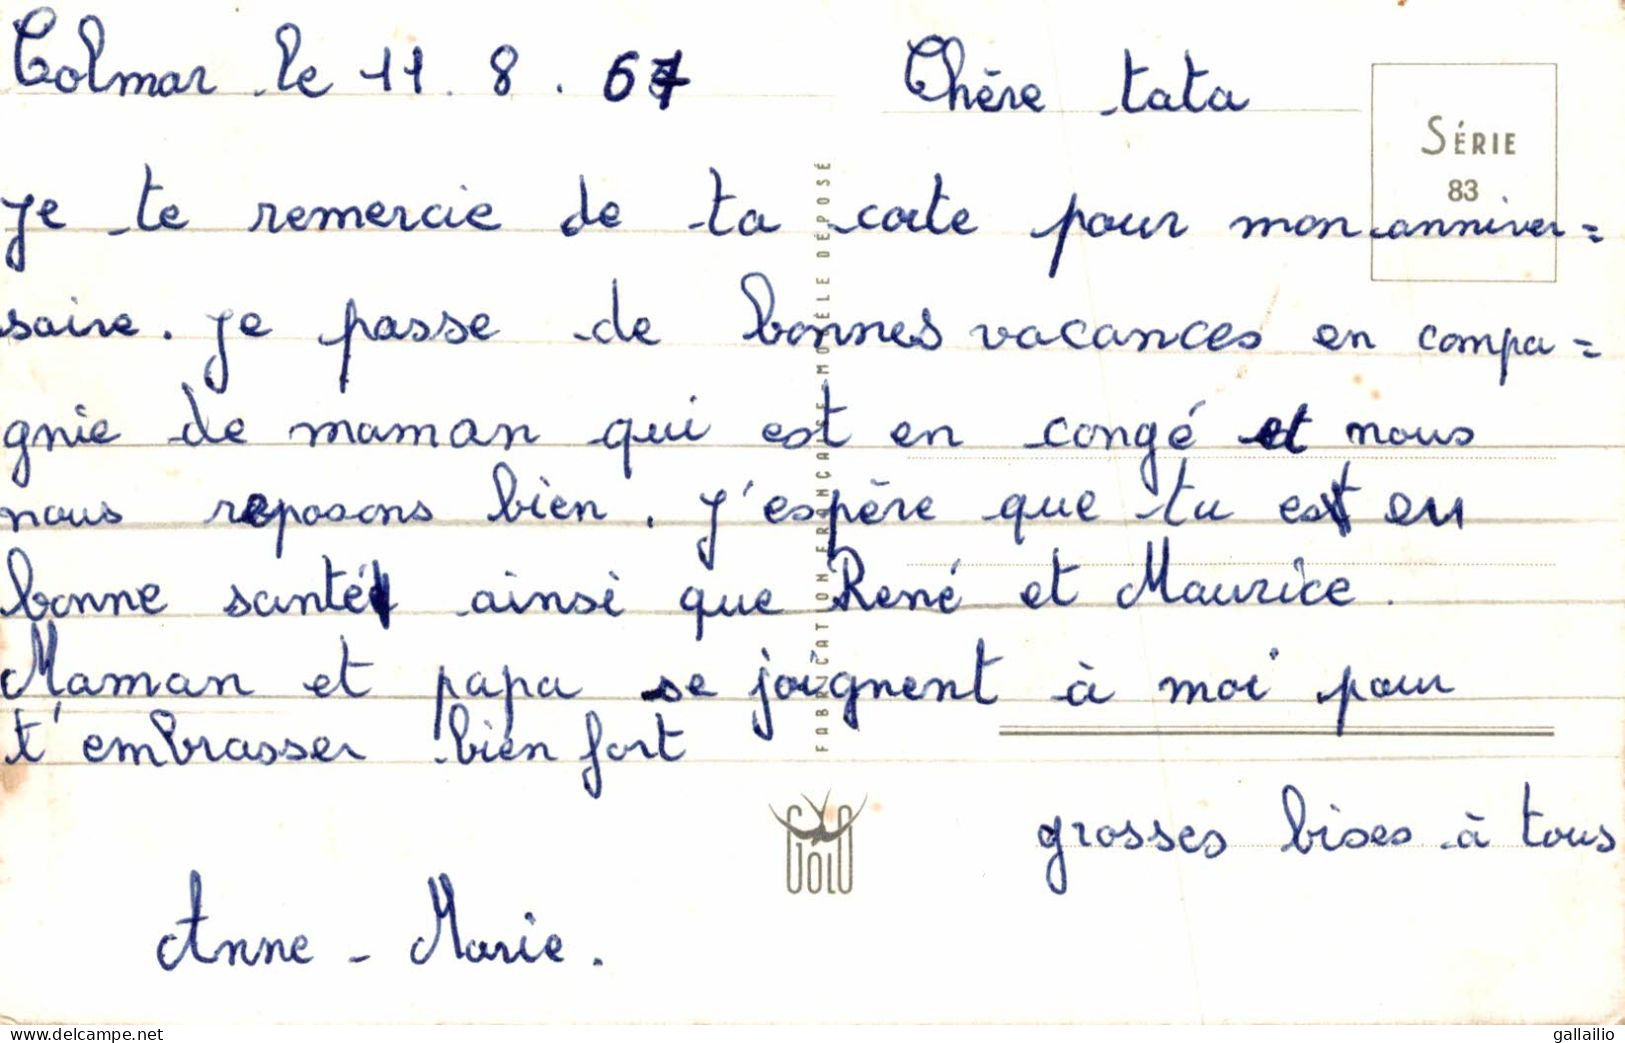 Colmar le 11. 8. 67 Chère tata
SÉRIE
83
Je te remercie de ta carte pour mon anniver=
saire. Je passe de bonnes vacances en compa=
gnie de maman qui est en congé et nous
nous reposons bien. J'espère que tu est en
bonne santé ainsi que René et Maurice.
Maman et papa se joignent à moi pour
t'embrasser bien fort
grosses bises à tous
Anne - Marie.
FABRICATION FRANÇAISE - MODÈLE DÉPOSÉ
YOLO
www.delcampe.net
gallailio